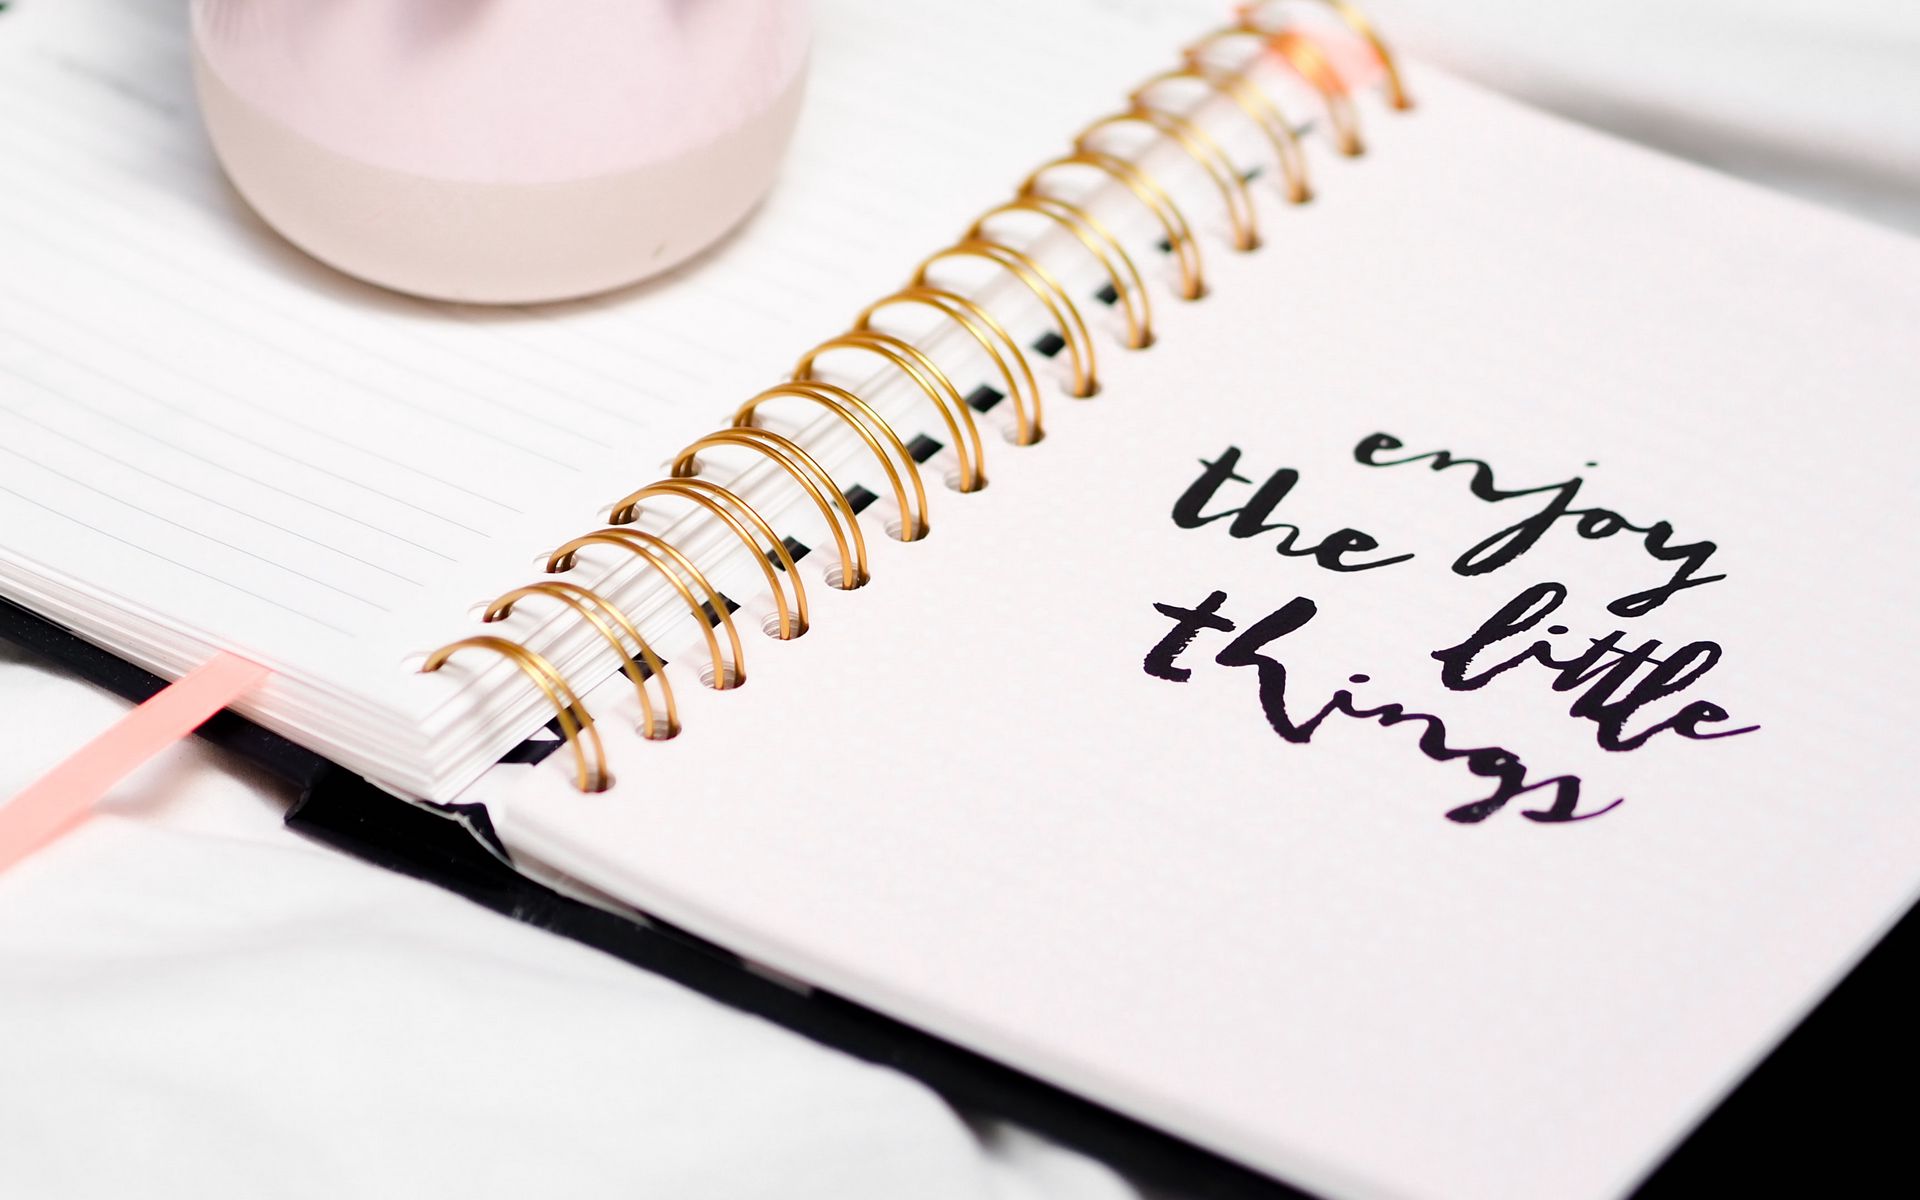 enjoy
the little
things